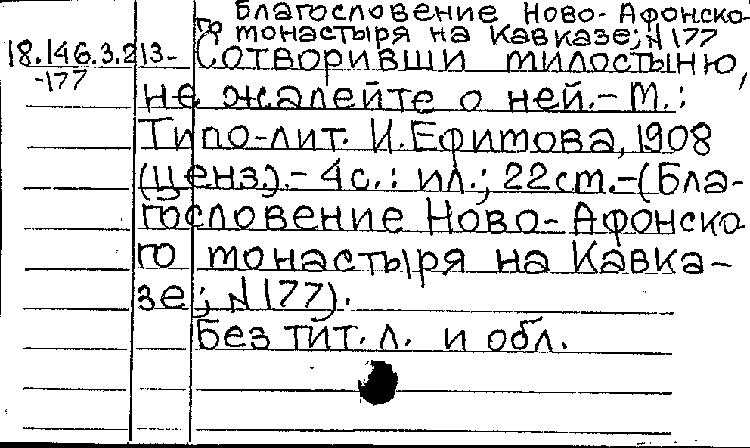 Благословение Ново-Афонско-
го монастыря на Кавказе; N 177
18.146.3.213- Сотворивши милостыню,
-177
не жалейте о ней.- М.:
Типо-лит. И.Ефимова, 1908
(ценз.).- 4с.: ил.; 22cm.-(Бла-
гословение Ново-Афонско-
го монастыря на Кавка-
зе; N 177).
Без тит. л. и обл.